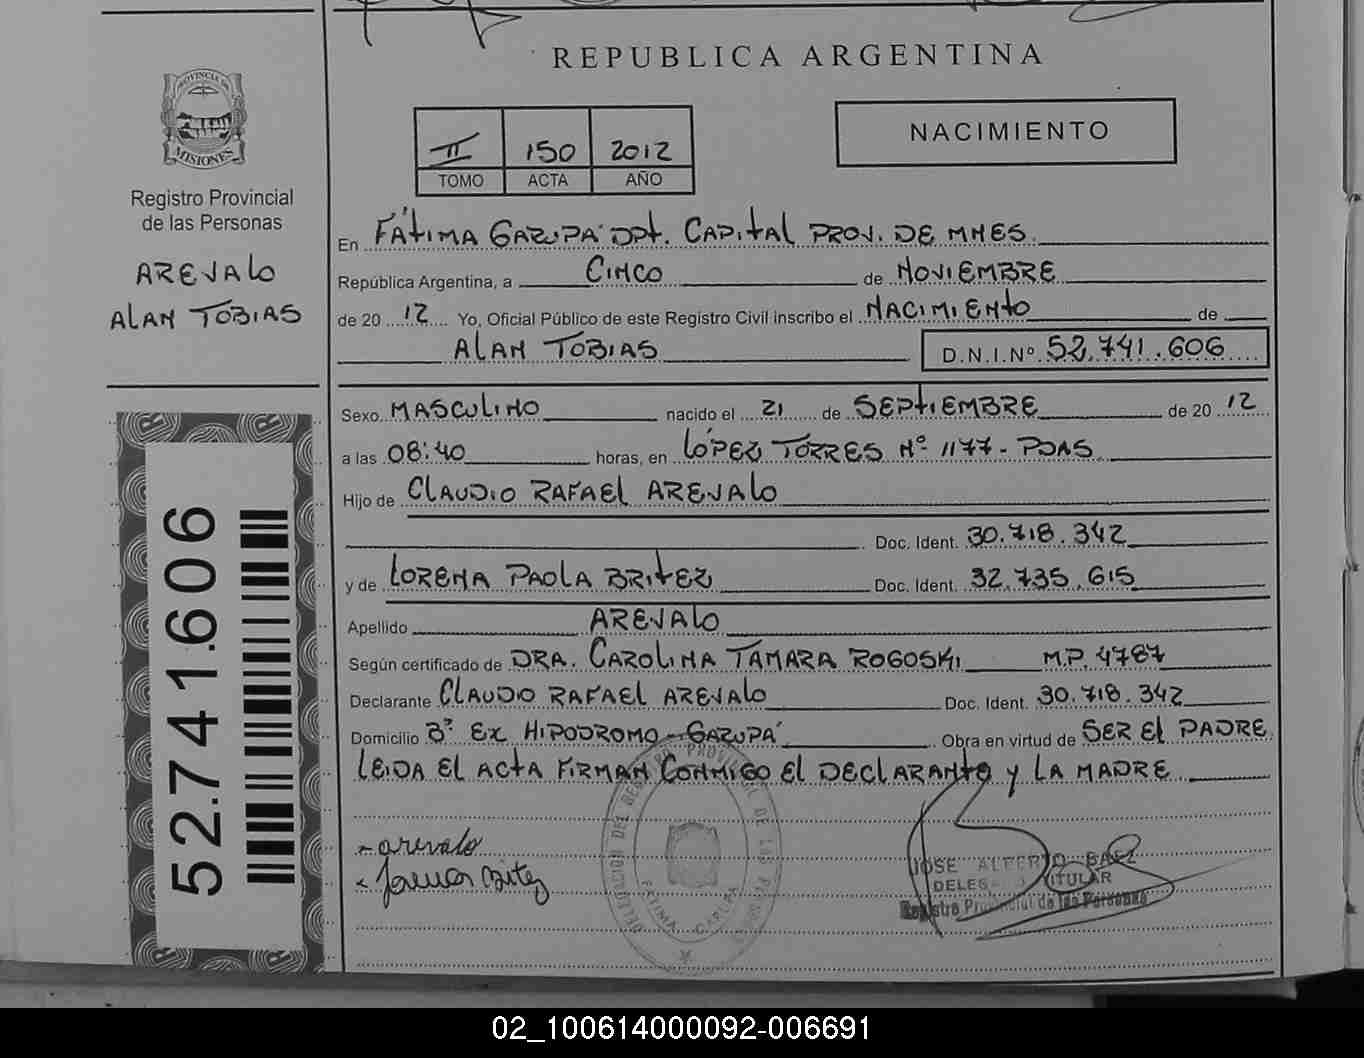 REPUBLICA ARGENTINA
PROVINCIA DE
MISIONES
Registro Provincial
de las Personas
AREVALO
ALAN TOBIAS
52.741.606
II 150 2012
TOMO ACTA AÑO
NACIMIENTO
En FÁTIMA GARUPA DPT. CAPITAL PROV. DE MNES.
República Argentina, a CINCO de NOVIEMBRE
de 20 12 Yo, Oficial Público de este Registro Civil inscribo el NACIMIENTO de
ALAN TOBIAS D.N.I.Nº 52.741.606
Sexo MASCULINO nacido el 21 de SEPTIEMBRE de 20 12
a las 08:40 horas, en LÓPEZ TORRES Nº 1177 - PDAS
Hijo de CLAUDIO RAFAEL AREVALO
Doc. Ident. 30.718.342
y de LORENA PAOLA BRITEZ Doc. Ident. 32.735.615
Apellido AREVALO
Según certificado de DRA. CAROLINA TAMARA ROGOSKI M.P. 4787
Declarante CLAUDIO RAFAEL AREVALO Doc. Ident. 30.718.342
Domicilio Bº EX HIPODROMO - GARUPÁ Obra en virtud de SER EL PADRE
LEIDA EL ACTA FIRMAN CONMIGO EL DECLARANTE Y LA MADRE
arevalo
Britez
DELEGACION DEL REGISTRO PROVINCIAL DE LAS PERSONAS
FATIMA GARUPA
JOSE ALBERTO BAEZ
DELEGADO TITULAR
Registro Provincial de las Personas
02_100614000092-006691